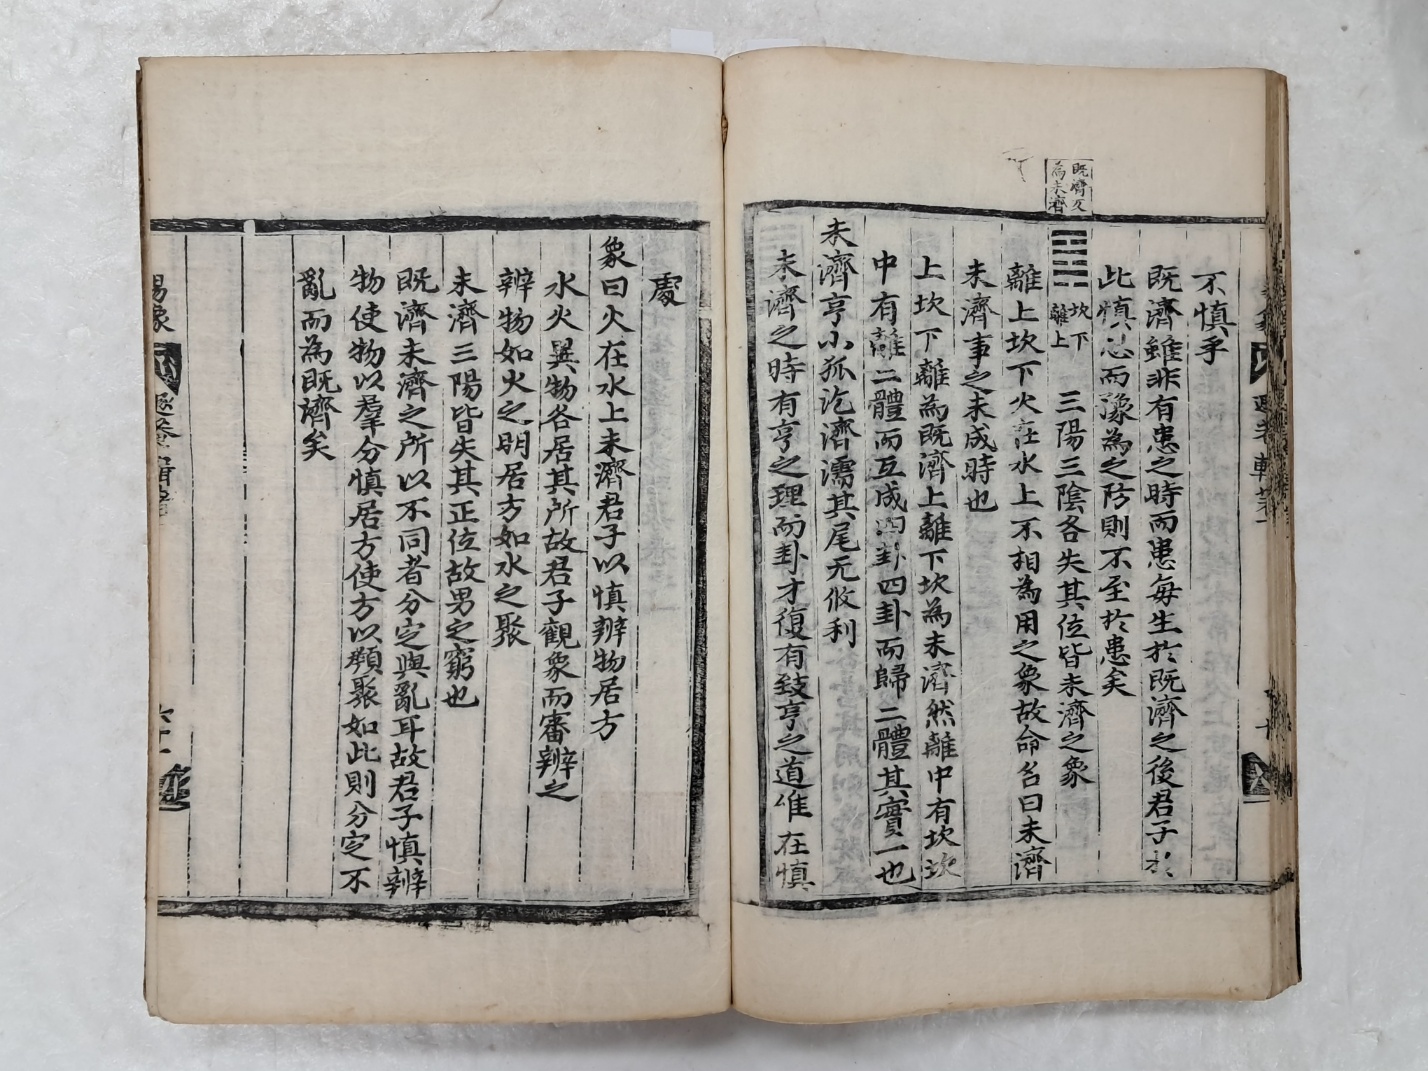 不慎乎
既濟雖非有患之時而患每生於既濟之後君子於
此慎思而豫為之防則不至於患矣
既濟反
為未濟
坎下
離上
三陽三陰各失其位皆未濟之象
離上坎下火在水上不相為用之象故命名曰未濟
未濟事之未成時也
上坎下離為既濟上離下坎為未濟然離中有坎坎
中有離二體而互成四卦四卦而歸二體其實一也
未濟亨小狐汔濟濡其尾无攸利
未濟之時有亨之理而卦才復有致亨之道惟在慎
處
象曰火在水上未濟君子以慎辨物居方
水火異物各居其所故君子觀象而審辨之
辨物如火之明居方如水之聚
未濟三陽皆失其正位故男之窮也
既濟未濟之所以不同者分定與亂耳故君子慎辨
物使物以羣分慎居方使方以類聚如此則分定不
亂而為既濟矣
易象